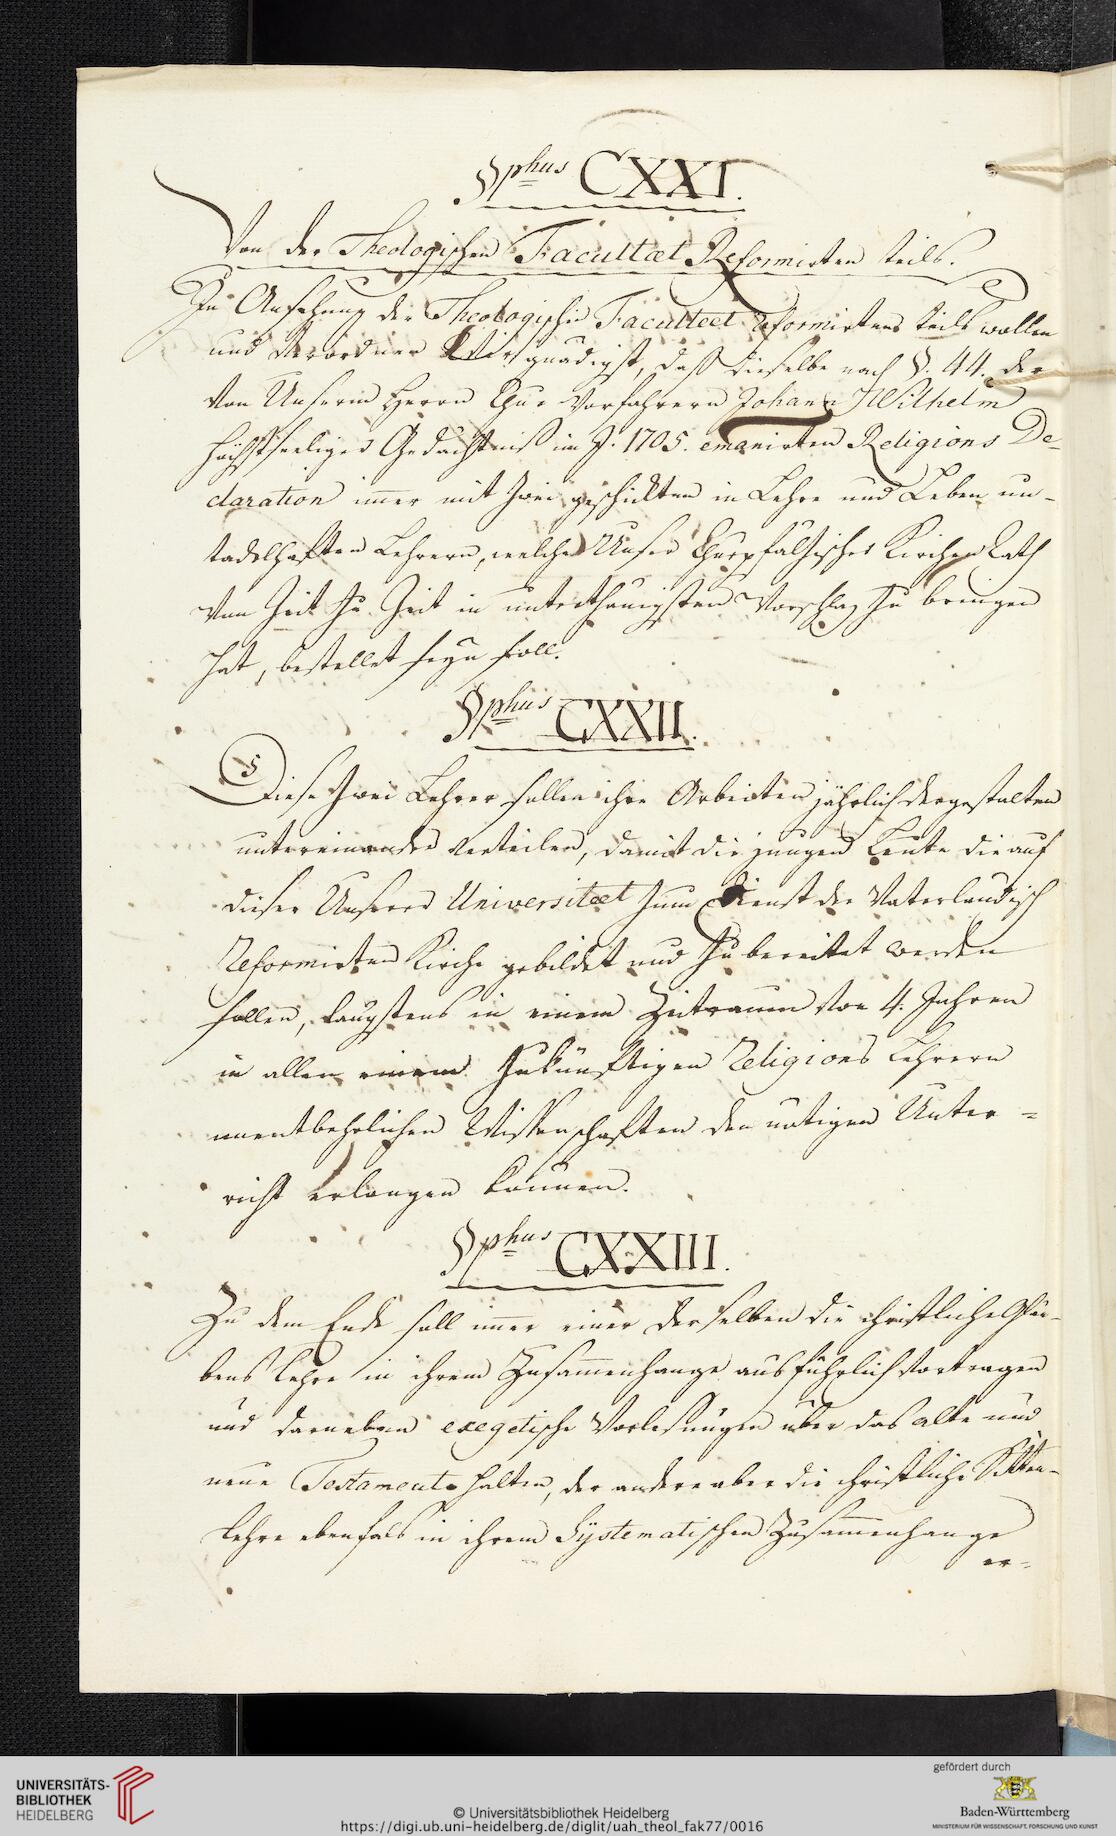 §phus CXXI.
Von der Theologischen Facultæt Reformirten teils.
In Ansehung der Theologischen Facultæt reformirten teils wollen
und verordnen Wir gnädigst, daß dieselbe nach §. 44. der
von Unserm Herrn Chur Vorfahrern Johann Wilhelm
höchstseeliger Gedächtniß im J. 1705. emanirten Religions De-
claration imer mit zwei geschickten in Lehre und Leben un-
tadelhaften Lehrern, welche Unser Churpfälzischer Kirchen Rath
von Zeit zu Zeit in unterthänigsten Vorschlag zu bringen
hat, bestellet seyn soll.
§phus CXXII.
Diese zwei Lehrer sollen ihre Arbeiten jährlich dergestalten
untereinander verteilen, damit die jungen Leute die auf
dieser Unserer Universitæt zum Dienst der Vaterländisch
Reformirten Kirche gebildet und zubereitet werden
sollen, längstens in einem Zeitraum von 4. Jahren
in allen einem zukünftigen Religions Lehrern
unentbehrlichen Wissenschaften den nötigen Unter-
richt erlangen können.
§phus CXXIII.
Zu dem Ende soll imer einer derselben die christliche Glau-
bens Lehre in ihrem Zusammenhange ausführlich vortragen
und darneben exegetische Vorlesungen über das alte und
neue Testament halten, der andere aber die christliche Sitten-
Lehre ebenfals in ihrem Systematischen Zusammenhange
er-
UNIVERSITÄTS-
BIBLIOTHEK
HEIDELBERG
© Universitätsbibliothek Heidelberg
https://digi.ub.uni-heidelberg.de/diglit/uah_theol_fak77/0016
gefördert durch
Baden-Württemberg
MINISTERIUM FÜR WISSENSCHAFT, FORSCHUNG UND KUNST